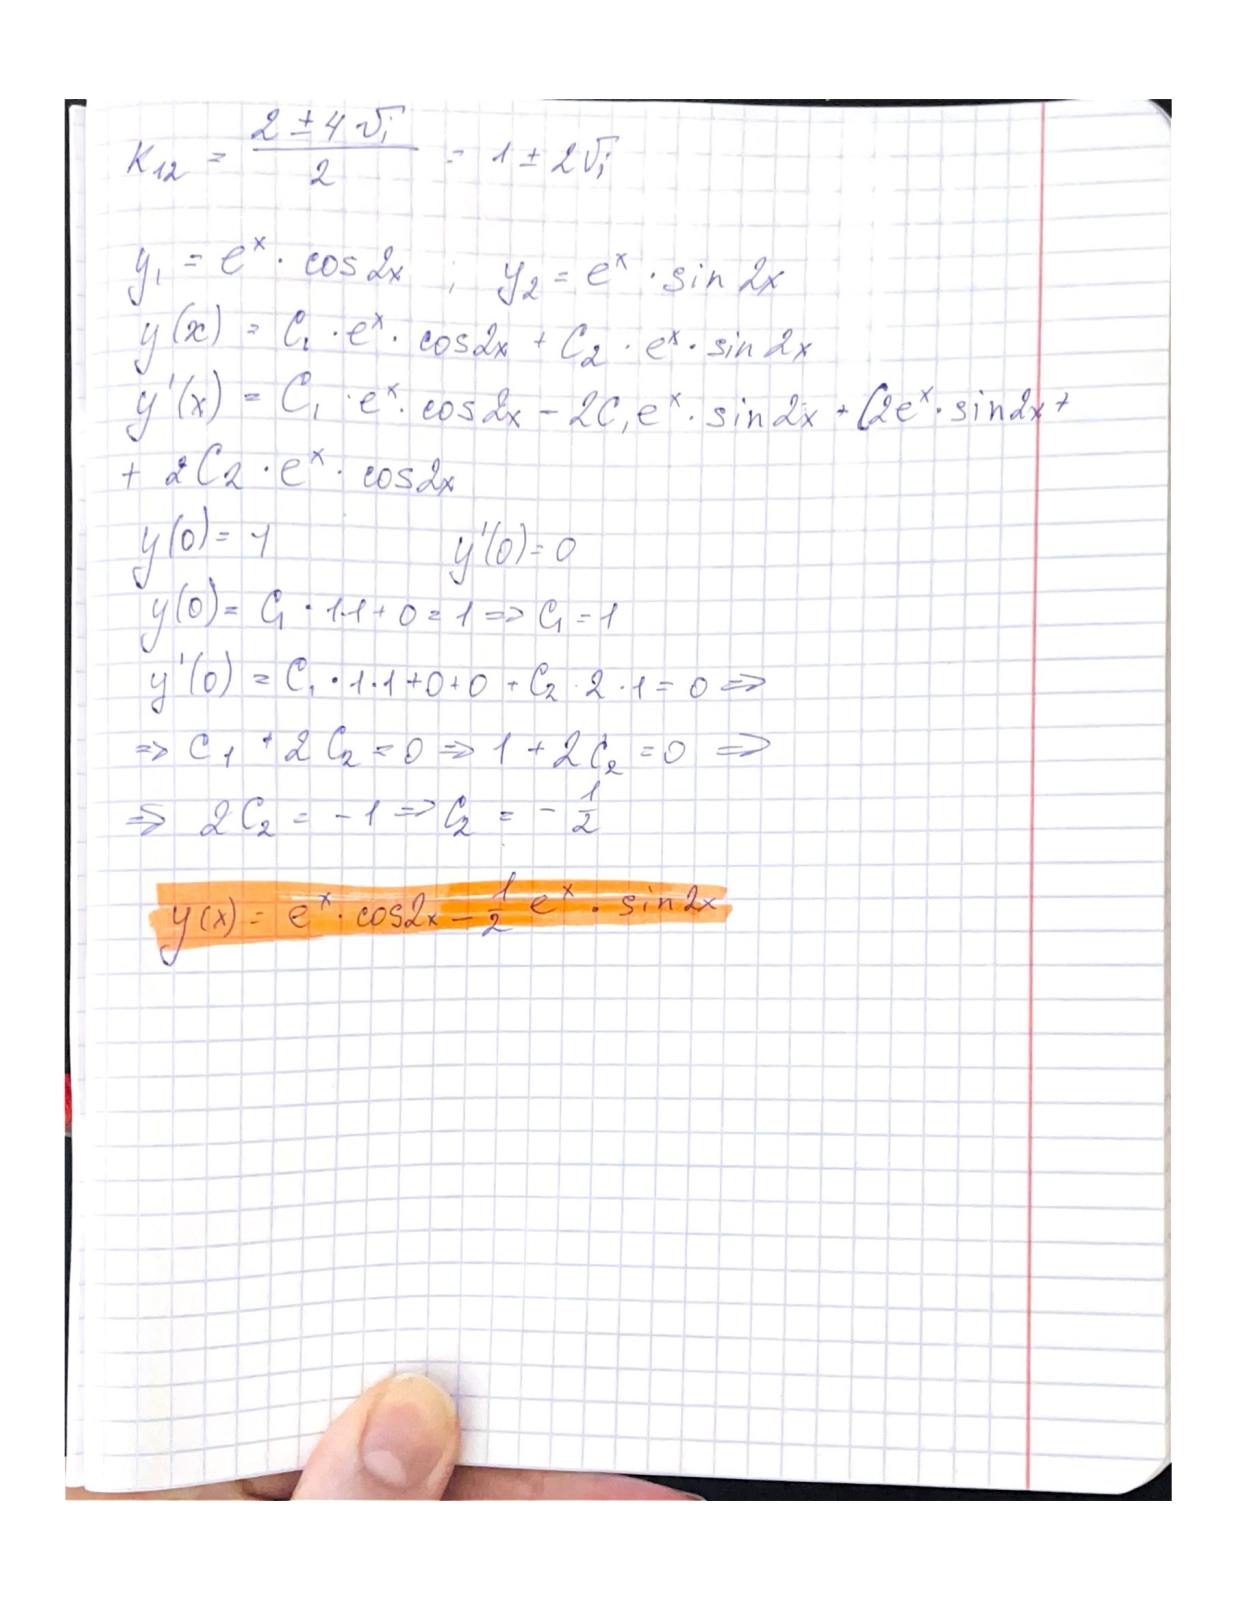 K₁₂ = (2 ± 4√i)/2 = 1 ± 2√i
y₁ = eˣ · cos2x ; y₂ = eˣ · sin 2x
y(x) = C₁ · eˣ · cos2x + C₂ · eˣ · sin 2x
y'(x) = C₁ · eˣ · cos2x − 2C₁eˣ · sin2x + C2eˣ · sin2x +
+ 2C₂ · eˣ · cos2x
y(0) = 1 y'(0) = 0
y(0) = C₁ · 1·1 + 0 = 1 => C₁ = 1
y'(0) = C₁ · 1·1 + 0 + 0 + C₂ · 2 · 1 = 0 =>
=> C₁ + 2C₂ = 0 => 1 + 2C₂ = 0 =>
=> 2C₂ = −1 => C₂ = −1/2
y(x) = eˣ · cos2x − 1/2 eˣ · sin2x